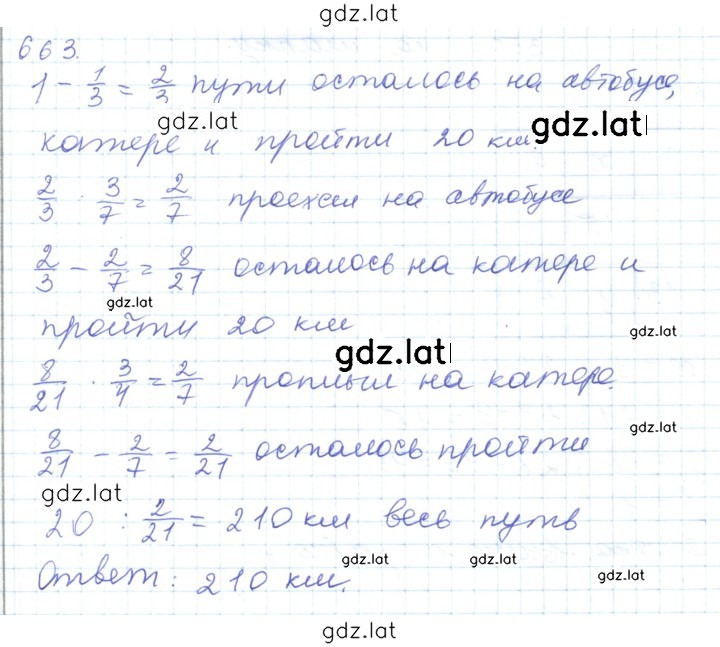 gdz.lat
663.
1 - 1/3 = 2/3 пути осталось на автобусе,
gdz.lat gdz.lat
катере и пройти 20 км.
2/3 · 3/7 = 2/7 проехал на автобусе
2/3 - 2/7 = 8/21 осталось на катере и
gdz.lat
пройти 20 км
gdz.lat
gdz.lat
8/21 · 3/4 = 2/7 проплыл на катере.
gdz.lat
8/21 - 2/7 = 2/21 осталось пройти
gdz.lat
20 : 2/21 = 210 км весь путь
gdz.lat gdz.lat
Ответ: 210 км.
gdz.lat
gdz.lat